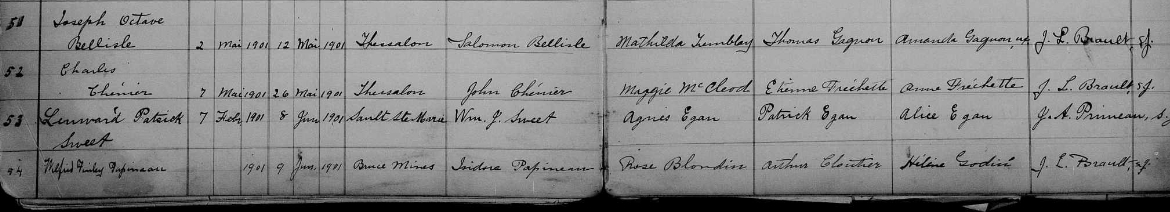 51 Joseph Octave
Bellisle 2 Mai 1901 12 Mai 1901 Thessalon Salomon Bellisle Mathilda Tremblay Thomas Gagnon Amanda Gagnon, ux J. L. Brault, sj.
52 Charles
Chénier 7 Mai 1901 26 Mai 1901 Thessalon John Chénier Maggie McCleod Etienne Fréchette Anne Fréchette J. L. Brault, sj.
53 Linward Patrick 7 Feb. 1901 8 Jun 1901 Sault Ste Marie Wm. J. Sweet Agnes Egan Patrick Egan Alice Egan J. A. Primeau, s.j.
Sweet
54 Wilfrid Papineau 1901 9 Jun. 1901 Bruce Mines Isidore Papineau Rose Blondin Arthur Cloutier Hélène J. L. Brault, sj.